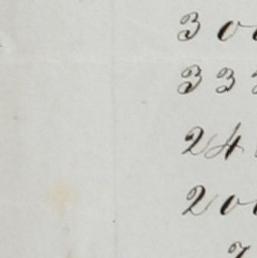 30
33
24
20
7